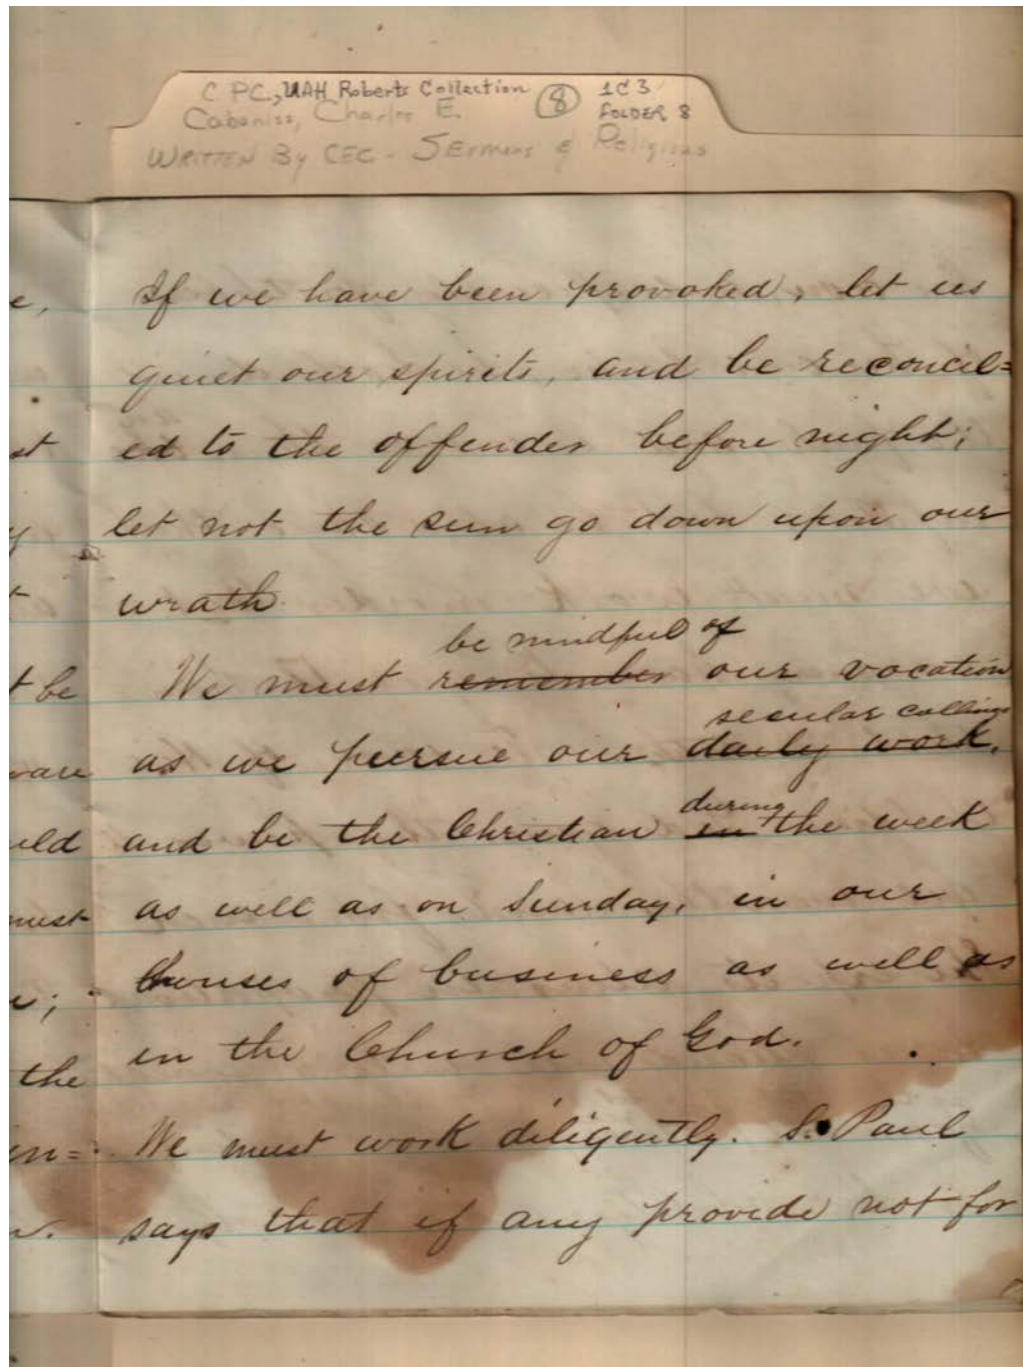 C PC, UAH Roberts Collection 8 1C3
Cabaniss, Charles E. FOLDER 8
WRITTEN By CEC - Sermons & Religious
e, If we have been provoked, let us
quiet our spirits, and be reconcil=
st ed to the offender before night;
y let not the sun go down upon our
t wrath.
be mindful of
t be We must remember our vocation
secular callings
as we pursue our daily work,
during
and be the Christian in the week
as well as on Sunday, in our
houses of business as well as
the in the Church of God.
in= We must work diligently. S. Paul
says that if any provide not for